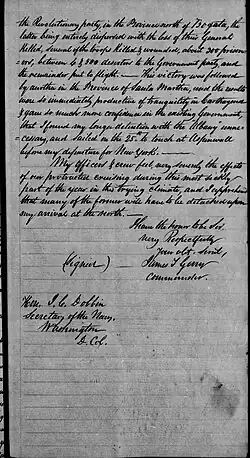 the Revolutionary party, in the Province north of Bogota, the
latter being entirely dispersed with the loss of their General
Killed, several of the troops Killed & wounded, about 200 prison-
ers, between 4 & 500 deserters to the Government party and
the remainder put to flight. — This victory was followed
by another in the Province of Santa Martha, and the results
were so immediately productive of tranquility in Carthagena
& gave so much more confidence in the existing Government,
that I found my longer detention with the Albany unne-
cessary, and sailed on the 25th to touch at Aspinwall
before my departure for New York.
My officers & crew feel very severely the effects
of our protracted cruising during this most sickly
part of the year in this trying climate, and I apprehend
that many of the former will have to be detached upon
my arrival at the north. —
I have the honor to be Sir,
Very Respectfully
Your obt. Servt,
(Signed) James T Gerry
Commander.
Hon. J. C. Dobbin
Secretary of the Navy,
Washington
D. Col.